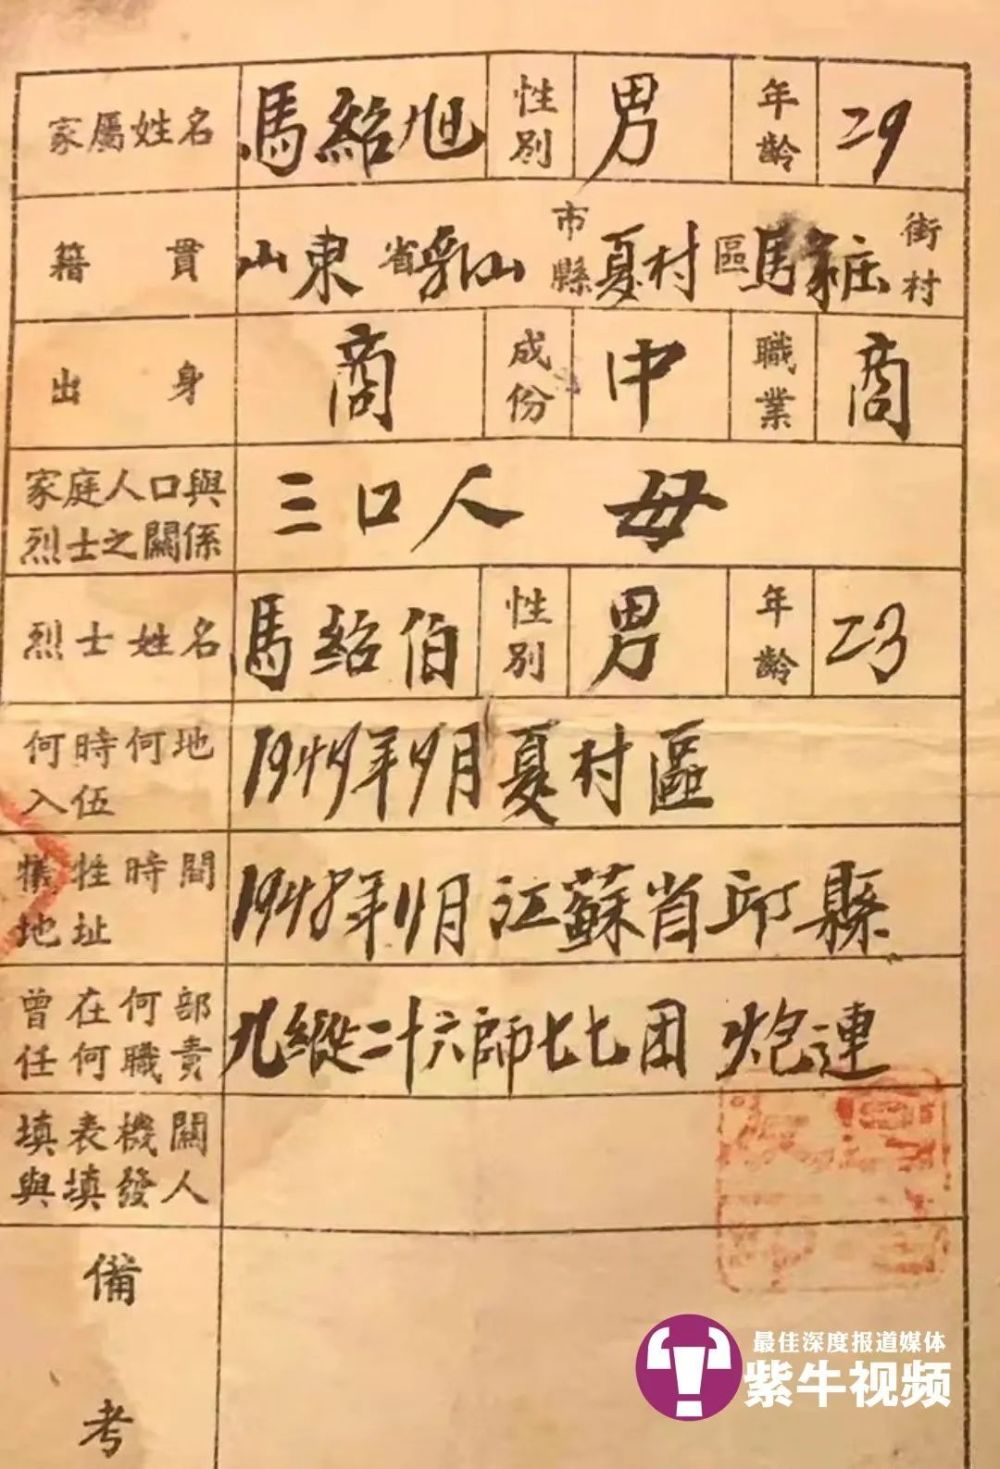 家屬姓名 馬紹旭 性別 男 年齡 29
籍貫 山東省乳山市縣夏村區馬家庄街村
出身 商 成份 中 職業 商
家庭人口與烈士之關係 三口人 母
烈士姓名 馬紹伯 性別 男 年齡 23
何時何地入伍 年 月夏村區
犧牲時間地址 1948年11月江蘇省邱縣
曾在何部任何職責 九縱二十六師七七团 炮連
填表機關與填發人
備考
最佳深度报道媒体
紫牛视频